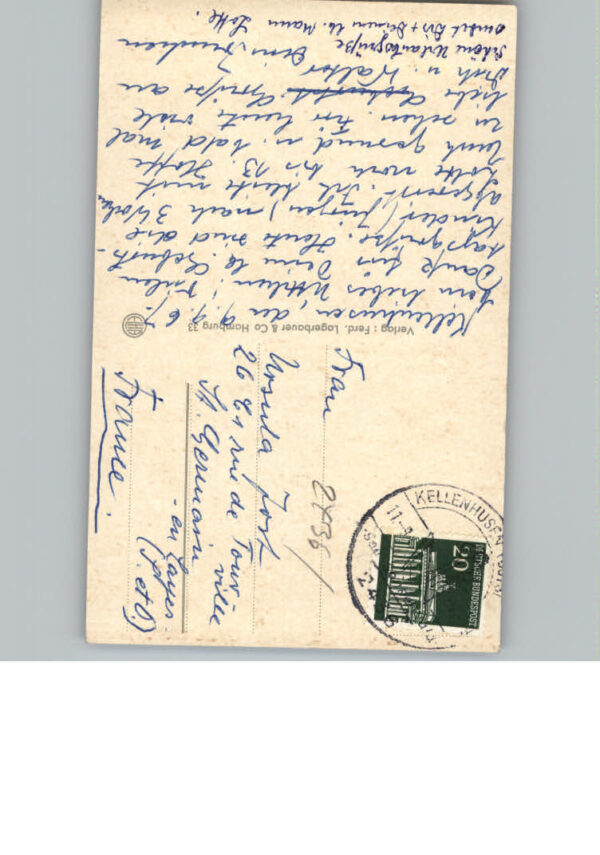 Kellenhusen, den 9.9.67.
Mein liebes Uschilein! Vielen
Dank für Deine lb. Geburts-
tagsgrüße. Heute sind die
Kinder (Jürgen) nach 3 Wochen
abgereist. Ich bleibe mit
Lotte noch bis 13. Hoffe
Euch gesund u. bald mal
zu sehen. Für heute viele
liebe Grüße an
Dich u. Walter
Schöne Urlaubsgrüße
sendet Dir + Deinem lb. Mann Lotte.
Verlag: Ferd. Lagerbauer & Co Hamburg 33
Frau
Ursula Jost
26 rue de Tour
St. Germain
- en Laye
(S. et O.)
France.
KELLENHUSEN
20
DEUTSCHE BUNDESPOST